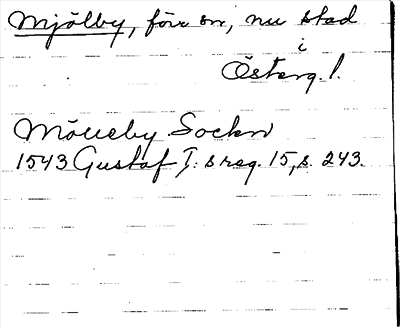 Mjölby, förr sn, nu stad
i
Österg. l.
Möuelby Sockn
1543 Gustaf I: s reg. 15, s. 243.